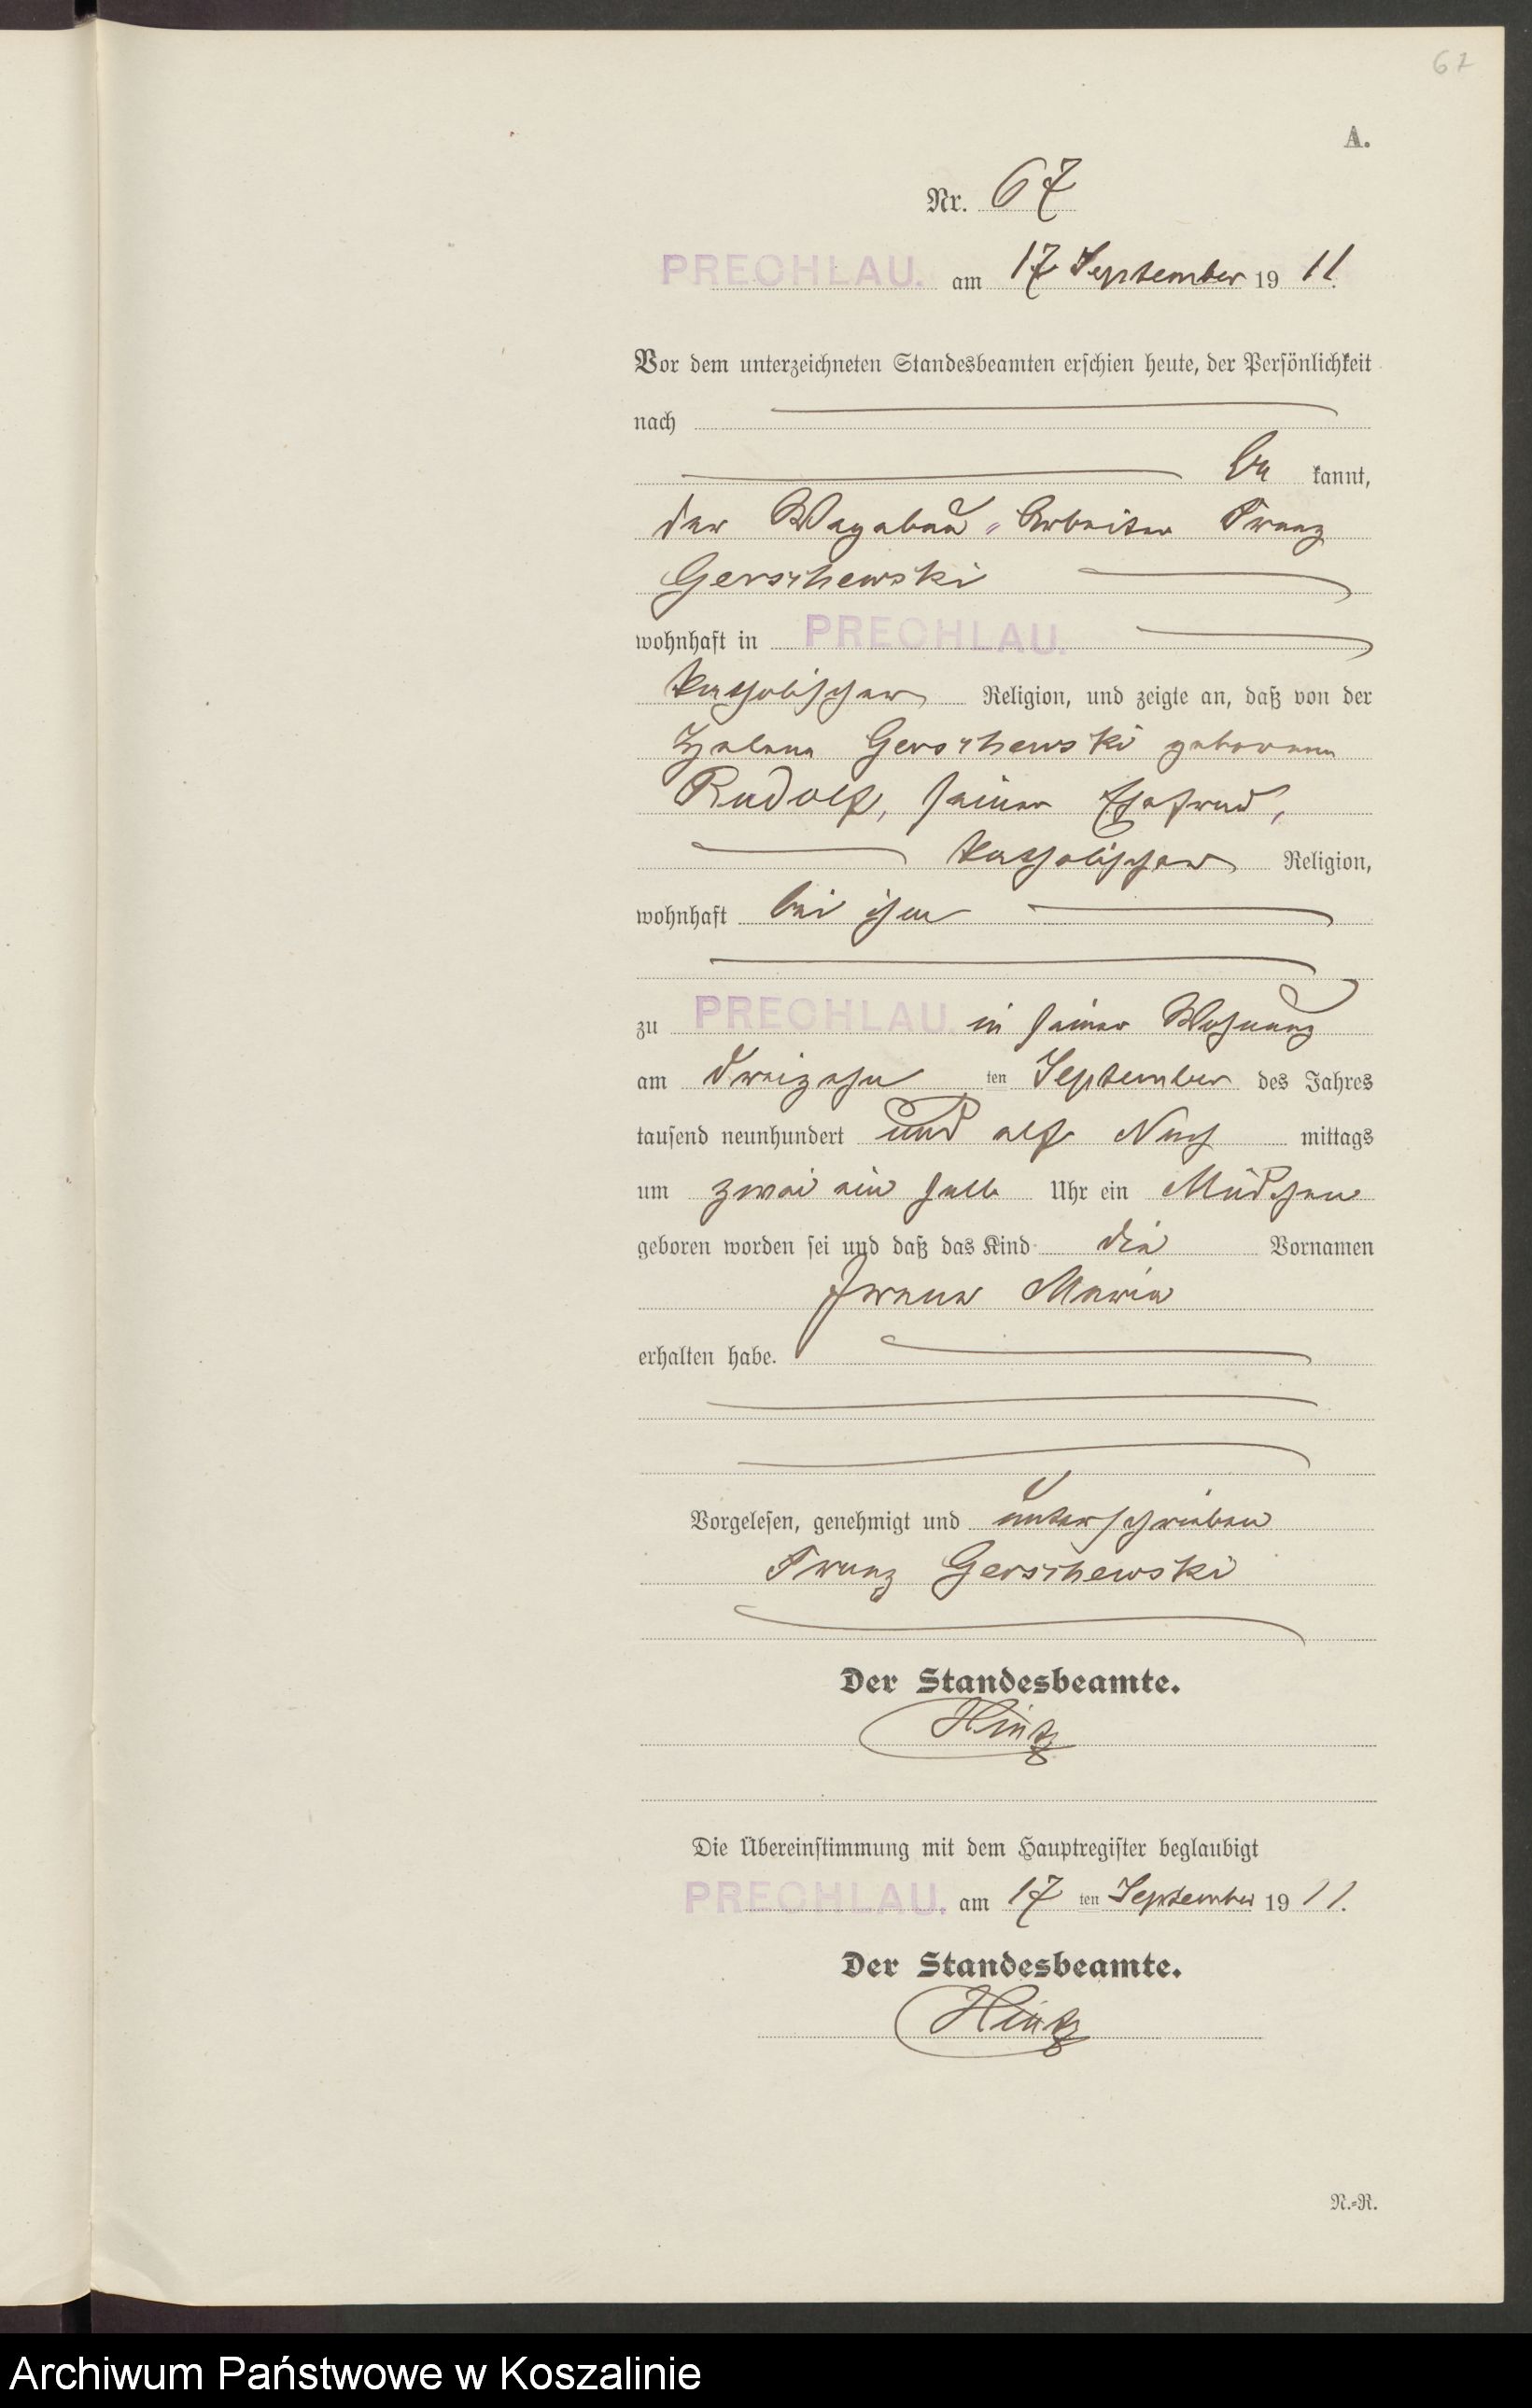 67
A.
Nr. 67
PRECHLAU. am 17 September 1911.
Vor dem unterzeichneten Standesbeamten erschien heute, der Persönlichkeit
nach
be kannt,
der Wegebau-Arbeiter Franz
Gerschewski
wohnhaft in PRECHLAU.
katholischer Religion, und zeigte an, daß von der
Helena Gerschewski geborenen
Rudolf, seiner Ehefrau,
katholischer Religion,
wohnhaft bei ihm
zu PRECHLAU. in seiner Wohnung
am dreizehn ten September des Jahres
tausend neunhundert und elf Nach mittags
um zwei ein halb Uhr ein Mädchen
geboren worden sei und daß das Kind die Vornamen
Maria
erhalten habe.
Vorgelesen, genehmigt und unterschrieben
Franz Gerschewski
Der Standesbeamte.
Hintz
Die Übereinstimmung mit dem Hauptregister beglaubigt
PRECHLAU. am 17 ten September 1911.
Der Standesbeamte.
Hintz
N.=R.
Archiwum Państwowe w Koszalinie